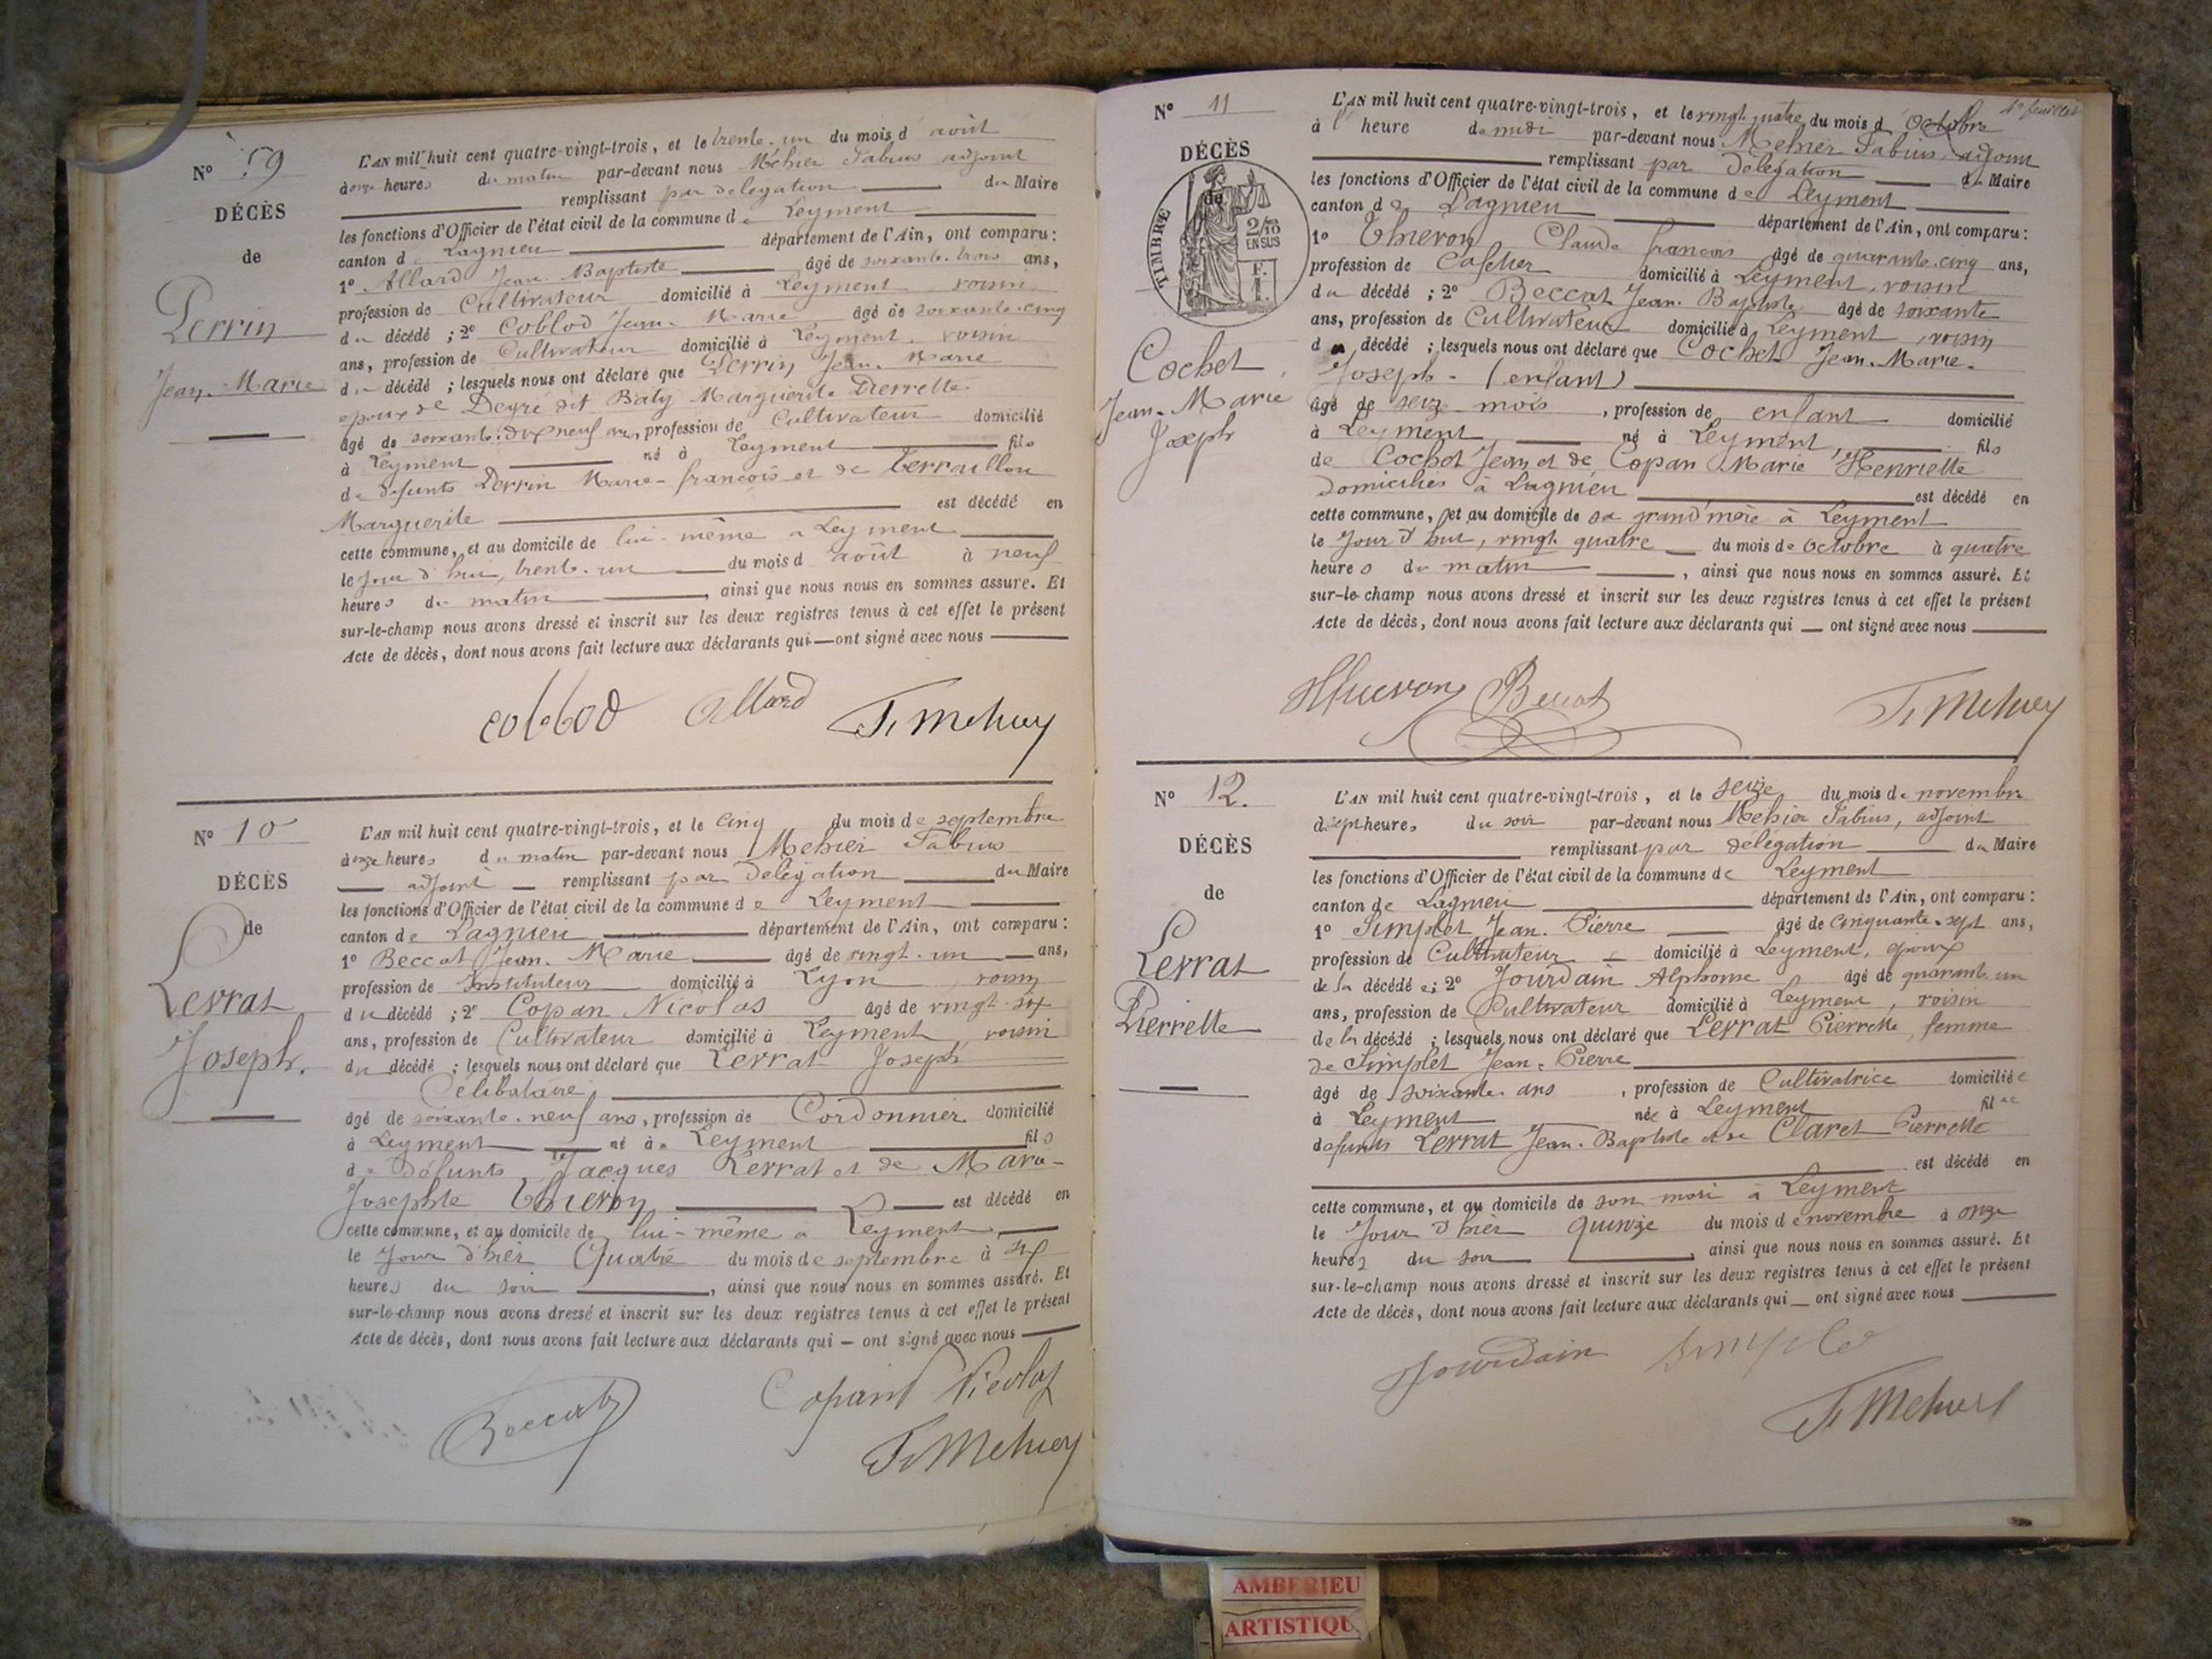 N° 9
DÉCÈS
de
Perrin
Jean-Marie
L'AN mil huit cent quatre-vingt-trois, et le trente-un du mois d'août
à onze heures du matin par-devant nous Mehier Fabius adjoint
remplissant par delegation du Maire
les fonctions d'Officier de l'état civil de la commune de Leyment
canton de Lagnieu département de l'Ain, ont comparu :
1° Allard Jean-Baptiste âgé de soixante-trois ans,
profession de Cultivateur domicilié à Leyment voisin
du décédé ; 2° Coblod Jean-Marie âgé de soixante-cinq
ans, profession de Cultivateur domicilié à Leyment, voisin
du décédé ; lesquels nous ont déclaré que Perrin Jean-Marie
epoux de Degré dit Baty Marguerite Pierrette
âgé de soixante-dix neuf ans, profession de Cultivateur domicilié
à Leyment né à Leyment fils
de défunts Perrin Marie-françois et de Terraillon
Marguerite est décédé en
cette commune, et au domicile de lui-même à Leyment
le jour d'hui, trente-un du mois d'août à neuf
heures du matin, ainsi que nous nous en sommes assuré. Et
sur-le-champ nous avons dressé et inscrit sur les deux registres tenus à cet effet le présent
Acte de décès, dont nous avons fait lecture aux déclarants qui — ont signé avec nous
coblod Allard F. Mehier
N° 10
DÉCÈS
de
Perrat
Joseph.
L'AN mil huit cent quatre-vingt-trois, et le cinq du mois de septembre
à onze heures du matin par-devant nous Mehier Fabius
adjoint remplissant par délégation du Maire
les fonctions d'Officier de l'état civil de la commune de Leyment
canton de Lagnieu département de l'Ain, ont comparu :
1° Beccat Jean-Marie âgé de vingt-un ans,
profession de Instituteur domicilié à Lyon voisin
du décédé ; 2° Copan Nicolas âgé de vingt-six
ans, profession de Cultivateur domicilié à Leyment, voisin
du décédé ; lesquels nous ont déclaré que Perrat Joseph
Célibataire,
âgé de soixante-neuf ans, profession de Cordonnier domicilié
à Leyment né à Leyment fils
de Défunts Jacques Perrat et de Marie-
Josephte Theron est décédé en
cette commune, et au domicile de lui-même à Leyment
le Jour d'hier Quatre du mois de septembre à six
heures du soir, ainsi que nous nous en sommes assuré. Et
sur-le-champ nous avons dressé et inscrit sur les deux registres tenus à cet effet le présent
Acte de décès, dont nous avons fait lecture aux déclarants qui — ont signé avec nous
Beccat Copant Nicolas
F. Mehier
1er feuillet
N° 11
DÉCÈS
de
TIMBRE
2/10
EN SUS
F.
1.
Cochet
Jean-Marie
Joseph
L'AN mil huit cent quatre-vingt-trois, et le vingt quatre du mois d'Octobre
à l'heure de midi par-devant nous Mehier Fabius, adjoint
remplissant par délégation du Maire
les fonctions d'Officier de l'état civil de la commune de Leyment
canton de Lagnieu département de l'Ain, ont comparu :
1° Theron Claude françois âgé de quarante-cinq ans,
profession de domicilié à Leyment, voisin
du décédé ; 2° Beccat Jean-Baptiste âgé de soixante
ans, profession de Cultivateur domicilié à Leyment, voisin
du décédé ; lesquels nous ont déclaré que Cochet Jean-Marie-
Joseph - (enfant)
âgé de seize mois, profession de enfant domicilié
à Leyment né à Leyment, fils
de Cochet Jean et de Copan Marie Henriette
Domiciliés à Lagnieu est décédé en
cette commune, et au domicile de sa grand'mère à Leyment
le Jour d'hui, vingt-quatre du mois de Octobre à quatre
heures du matin, ainsi que nous nous en sommes assuré. Et
sur-le-champ nous avons dressé et inscrit sur les deux registres tenus à cet effet le présent
Acte de décès, dont nous avons fait lecture aux déclarants qui — ont signé avec nous
Theron Beccat F. Mehier
N° 12.
DÉCÈS
de
Perrat
Pierrette
L'AN mil huit cent quatre-vingt-trois, et le seize du mois de novembre
à sept heures du soir par-devant nous Mehier Fabius, adjoint
remplissant par délégation du Maire
les fonctions d'Officier de l'état civil de la commune de Leyment
canton de Lagnieu département de l'Ain, ont comparu :
1° Simplet Jean-Pierre âgé de cinquante-sept ans,
profession de Cultivateur domicilié à Leyment, epoux
de la décédée ; 2° Jourdain Alphonse âgé de quarante un
ans, profession de Cultivateur domicilié à Leyment, voisin
de la décédé ; lesquels nous ont déclaré que Perrat Pierrette, femme
de Simplet Jean-Pierre
âgé de soixante ans, profession de Cultivatrice domiciliée
à Leyment née à Leyment fille
défunts Perrat Jean-Baptiste et de Claret Pierrette
est décédé en
cette commune, et au domicile de son mari à Leyment
le Jour d'hier quinze du mois de novembre à onze
heures du soir, ainsi que nous nous en sommes assuré. Et
sur-le-champ nous avons dressé et inscrit sur les deux registres tenus à cet effet le présent
Acte de décès, dont nous avons fait lecture aux déclarants qui — ont signé avec nous
Jourdain Simple
F. Mehier
AMBERIEU
ARTISTIQU